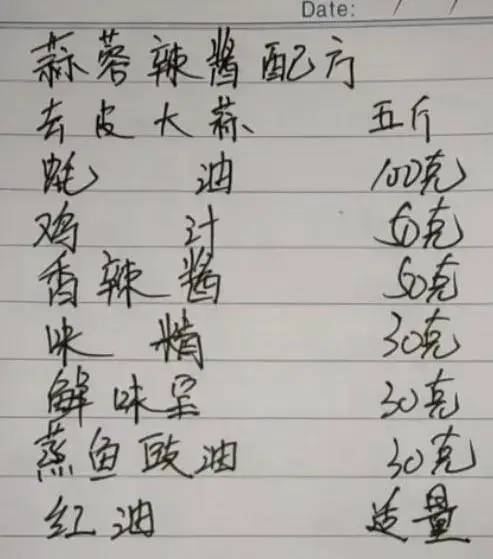 Date: / /
蒜蓉辣酱配方
去皮大蒜 五斤
蚝油 100克
鸡汁 50克
香辣酱 50克
味精 30克
鲜味宝 30克
蒸鱼豉油 30克
红油 适量